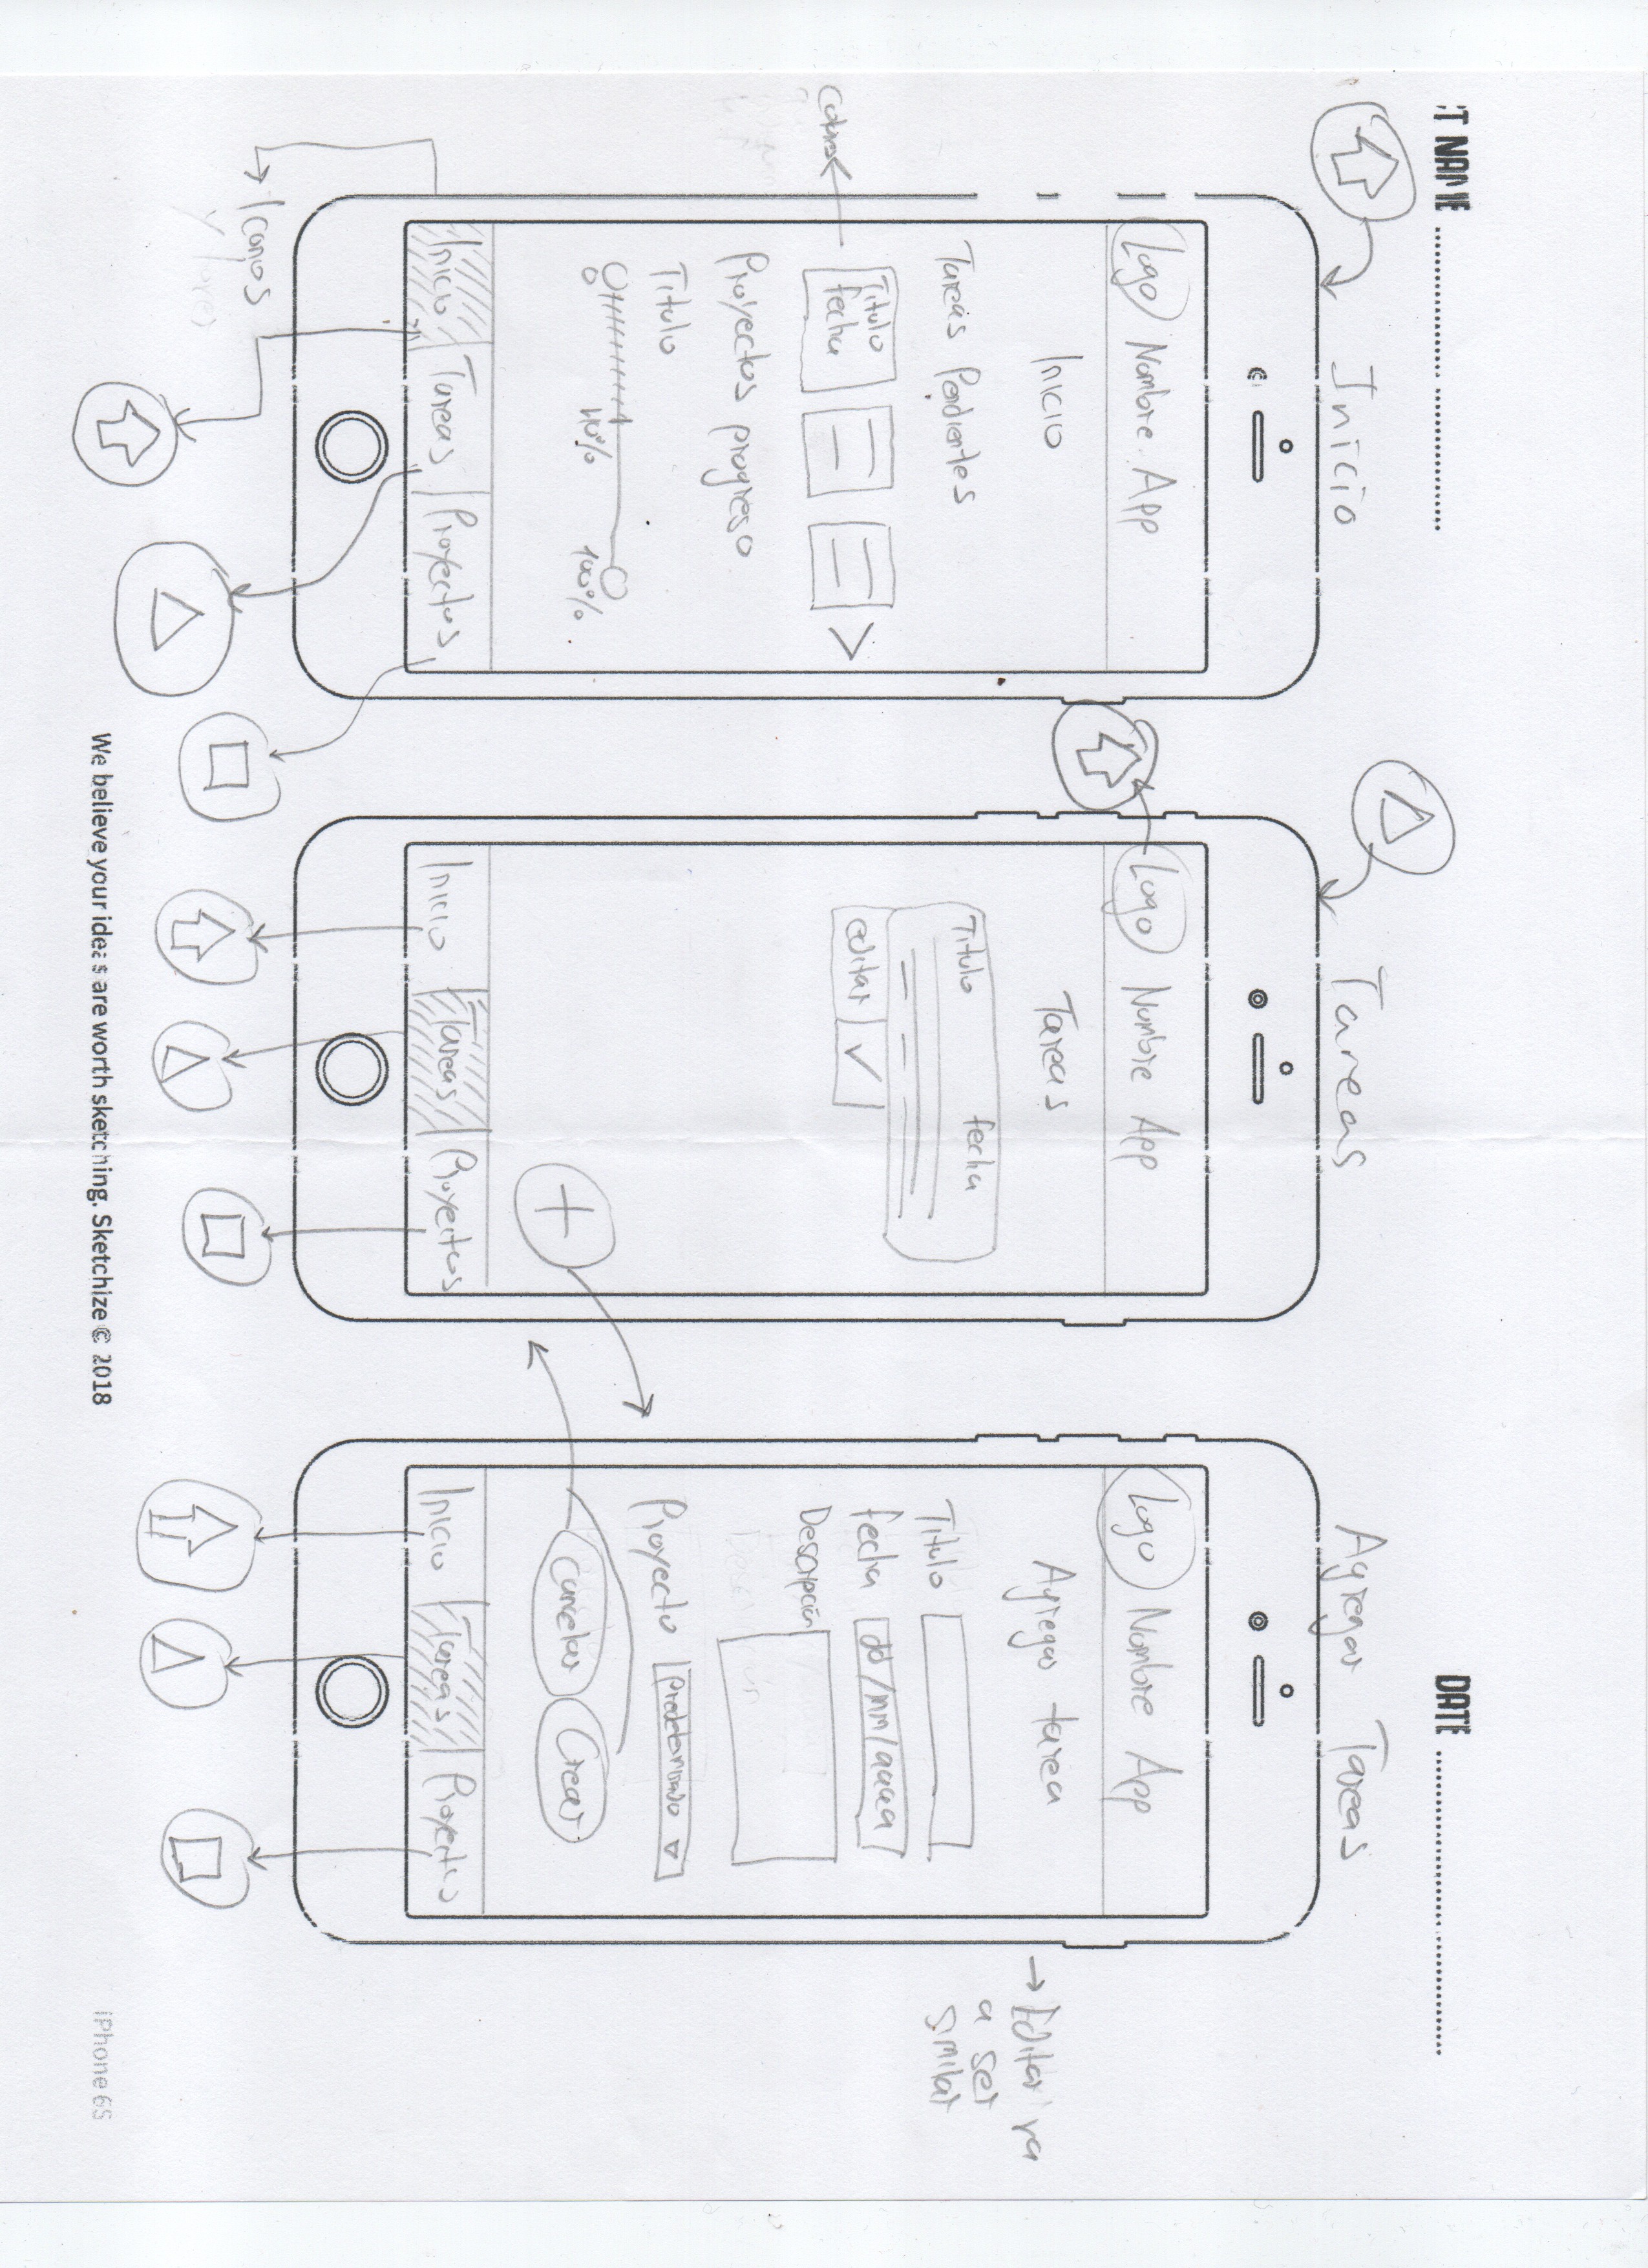 CT NAME
DATE
Inicio
Tareas
Agregar Tareas
Logo
Nombre App
Inicio
Tareas Pendientes
Titulo
fecha
Proyectos progreso
Titulo
0
40%
100%
Inicio
Tareas
Proyectos
Iconos
Logo
Nombre App
Tareas
Titulo
fecha
editar
+
Inicio
Tareas
Proyectos
Logo
Nombre App
Agregar tarea
Titulo
fecha
dd/mm/aaaa
Descripción
Descripción
Proyecto
Predeterminado
Cancelar
Crear
Inicio
Tareas
Proyectos
Editar va
a ser
similar
We believe your ideas are worth sketching. Sketchize © 2018
iPhone 6S